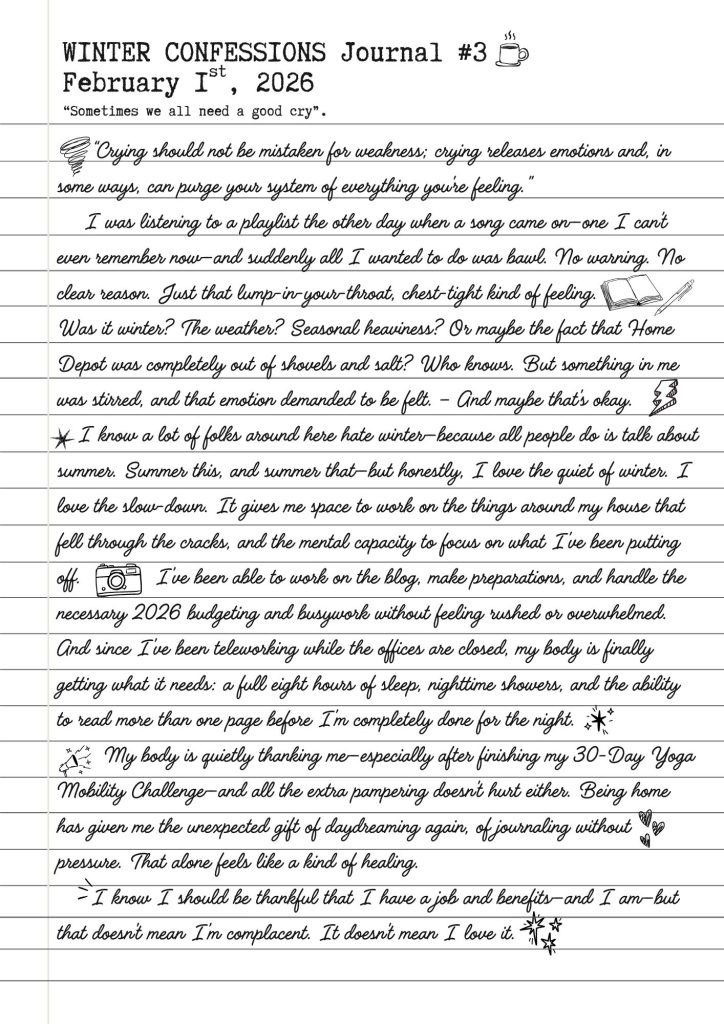 WINTER CONFESSIONS Journal #3
February 1st, 2026
“Sometimes we all need a good cry”.
“Crying should not be mistaken for weakness; crying releases emotions and, in
some ways, can purge your system of everything you're feeling.”
I was listening to a playlist the other day when a song came on—one I can't
even remember now—and suddenly all I wanted to do was bawl. No warning. No
clear reason. Just that lump-in-your-throat, chest-tight kind of feeling.
Was it winter? The weather? Seasonal heaviness? Or maybe the fact that Home
Depot was completely out of shovels and salt? Who knows. But something in me
was stirred, and that emotion demanded to be felt. - And maybe that's okay.
I know a lot of folks around here hate winter—because all people do is talk about
summer. Summer this, and summer that—but honestly, I love the quiet of winter. I
love the slow-down. It gives me space to work on the things around my house that
fell through the cracks, and the mental capacity to focus on what I've been putting
off. I've been able to work on the blog, make preparations, and handle the
necessary 2026 budgeting and busywork without feeling rushed or overwhelmed.
And since I've been teleworking while the offices are closed, my body is finally
getting what it needs: a full eight hours of sleep, nighttime showers, and the ability
to read more than one page before I'm completely done for the night.
My body is quietly thanking me—especially after finishing my 30-Day Yoga
Mobility Challenge—and all the extra pampering doesn't hurt either. Being home
has given me the unexpected gift of daydreaming again, of journaling without
pressure. That alone feels like a kind of healing.
I know I should be thankful that I have a job and benefits—and I am—but
that doesn't mean I'm complacent. It doesn't mean I love it.